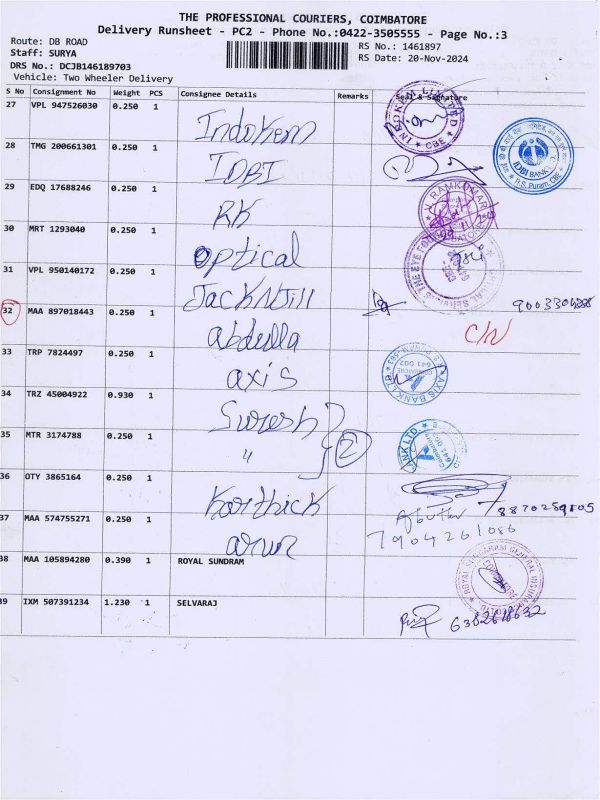 THE PROFESSIONAL COURIERS, COIMBATORE
Delivery Runsheet - PC2 - Phone No.:0422-3505555 - Page No.:3
Route: DB ROAD
Staff: SURYA
DRS No.: DCJB146189703
Vehicle: Two Wheeler Delivery
RS No.: 1461897
RS Date: 20-Nov-2024
S No Consignment No Weight PCS Consignee Details Remarks Seal & Signature
27 VPL 947526030 0.250 1 Indokem
28 TMG 200661301 0.250 1 IDBI
IDBI BANK
R.S. Puram, CBE
29 EDQ 17688246 0.250 1 RK
30 MRT 1293040 0.250 1 optical
31 VPL 950140172 0.250 1 JackNJill
32 MAA 897018443 0.250 1 abdulla C/N
33 TRP 7824497 0.250 1 axis
AXIS BANK LTD
641 002
34 TRZ 45004922 0.930 1 Suresh
35 MTR 3174788 0.250 1 " 2
36 OTY 3865164 0.250 1 Karthick
37 MAA 574755271 0.250 1 arun
7904261086
38 MAA 105894280 0.390 1 ROYAL SUNDRAM
ROYAL SUNDARAM GENERAL
39 IXM 507391234 1.230 1 SELVARAJ